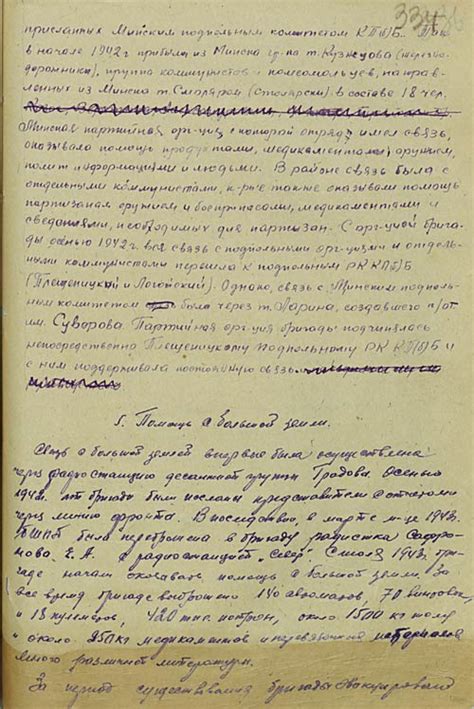 присланных Минским подпольным комитетом КП/б/Б. Так
в начале 1942 г прибыли из Минска гр-па т. Кузнецова (железно-
дорожники), группа коммунистов и комсомольцев, направ-
ленных из Минска т. в составе 18 чел.
Минская партийная орг-ция с которой отряд имел связь,
оказывала помощь продуктами, медикаментами, оружием,
полит информациями и людьми. В районе связь была с
отдельными коммунистами, к-рые также оказывали помощь
партизанам оружием и боеприпасами, медикаментами и
сведениями, необходимых для партизан. С орг-цией брига-
ды осенью 1942 г. вся связь с подпольными орг-циями и отдель-
ными коммунистами перешла к подпольным РК КП/б/Б
(Плещеницкий и Логойский). Однако, связь с Минским подполь-
ным комитетом была через т. Ларина, создавшего п/от.
им. Суворова. Партийная орг-ция бригады подчинялась
непосредственно Плещеницкому подпольному РК КП/б/Б и
с ним поддерживала постоянную связь.
5. Помощь с большой земли.
Связь с большой землей впервые была осуществлена
через радиостанцию десантной группы Градова. Осенью
1942 г. от бригады были посланы представители с отчетами
через линию фронта. В последствии, в марте м-це 1943 г.
БШПД была переброшена в бригаду радистка Сафро-
нова Е. А. с радиостанцией "Север". С июля 1943 г. бри-
гаде начали оказывать помощь с большой земли. За
все время бригаде выброшено 140 автоматов, 70 винтовок,
и 18 пулеметов, 420 тыс патрон, около 1500 кг толя
и около 250 кг медикаментов и перевязочных материалов
много различной литературы.
За период существования бригады эвакуировано